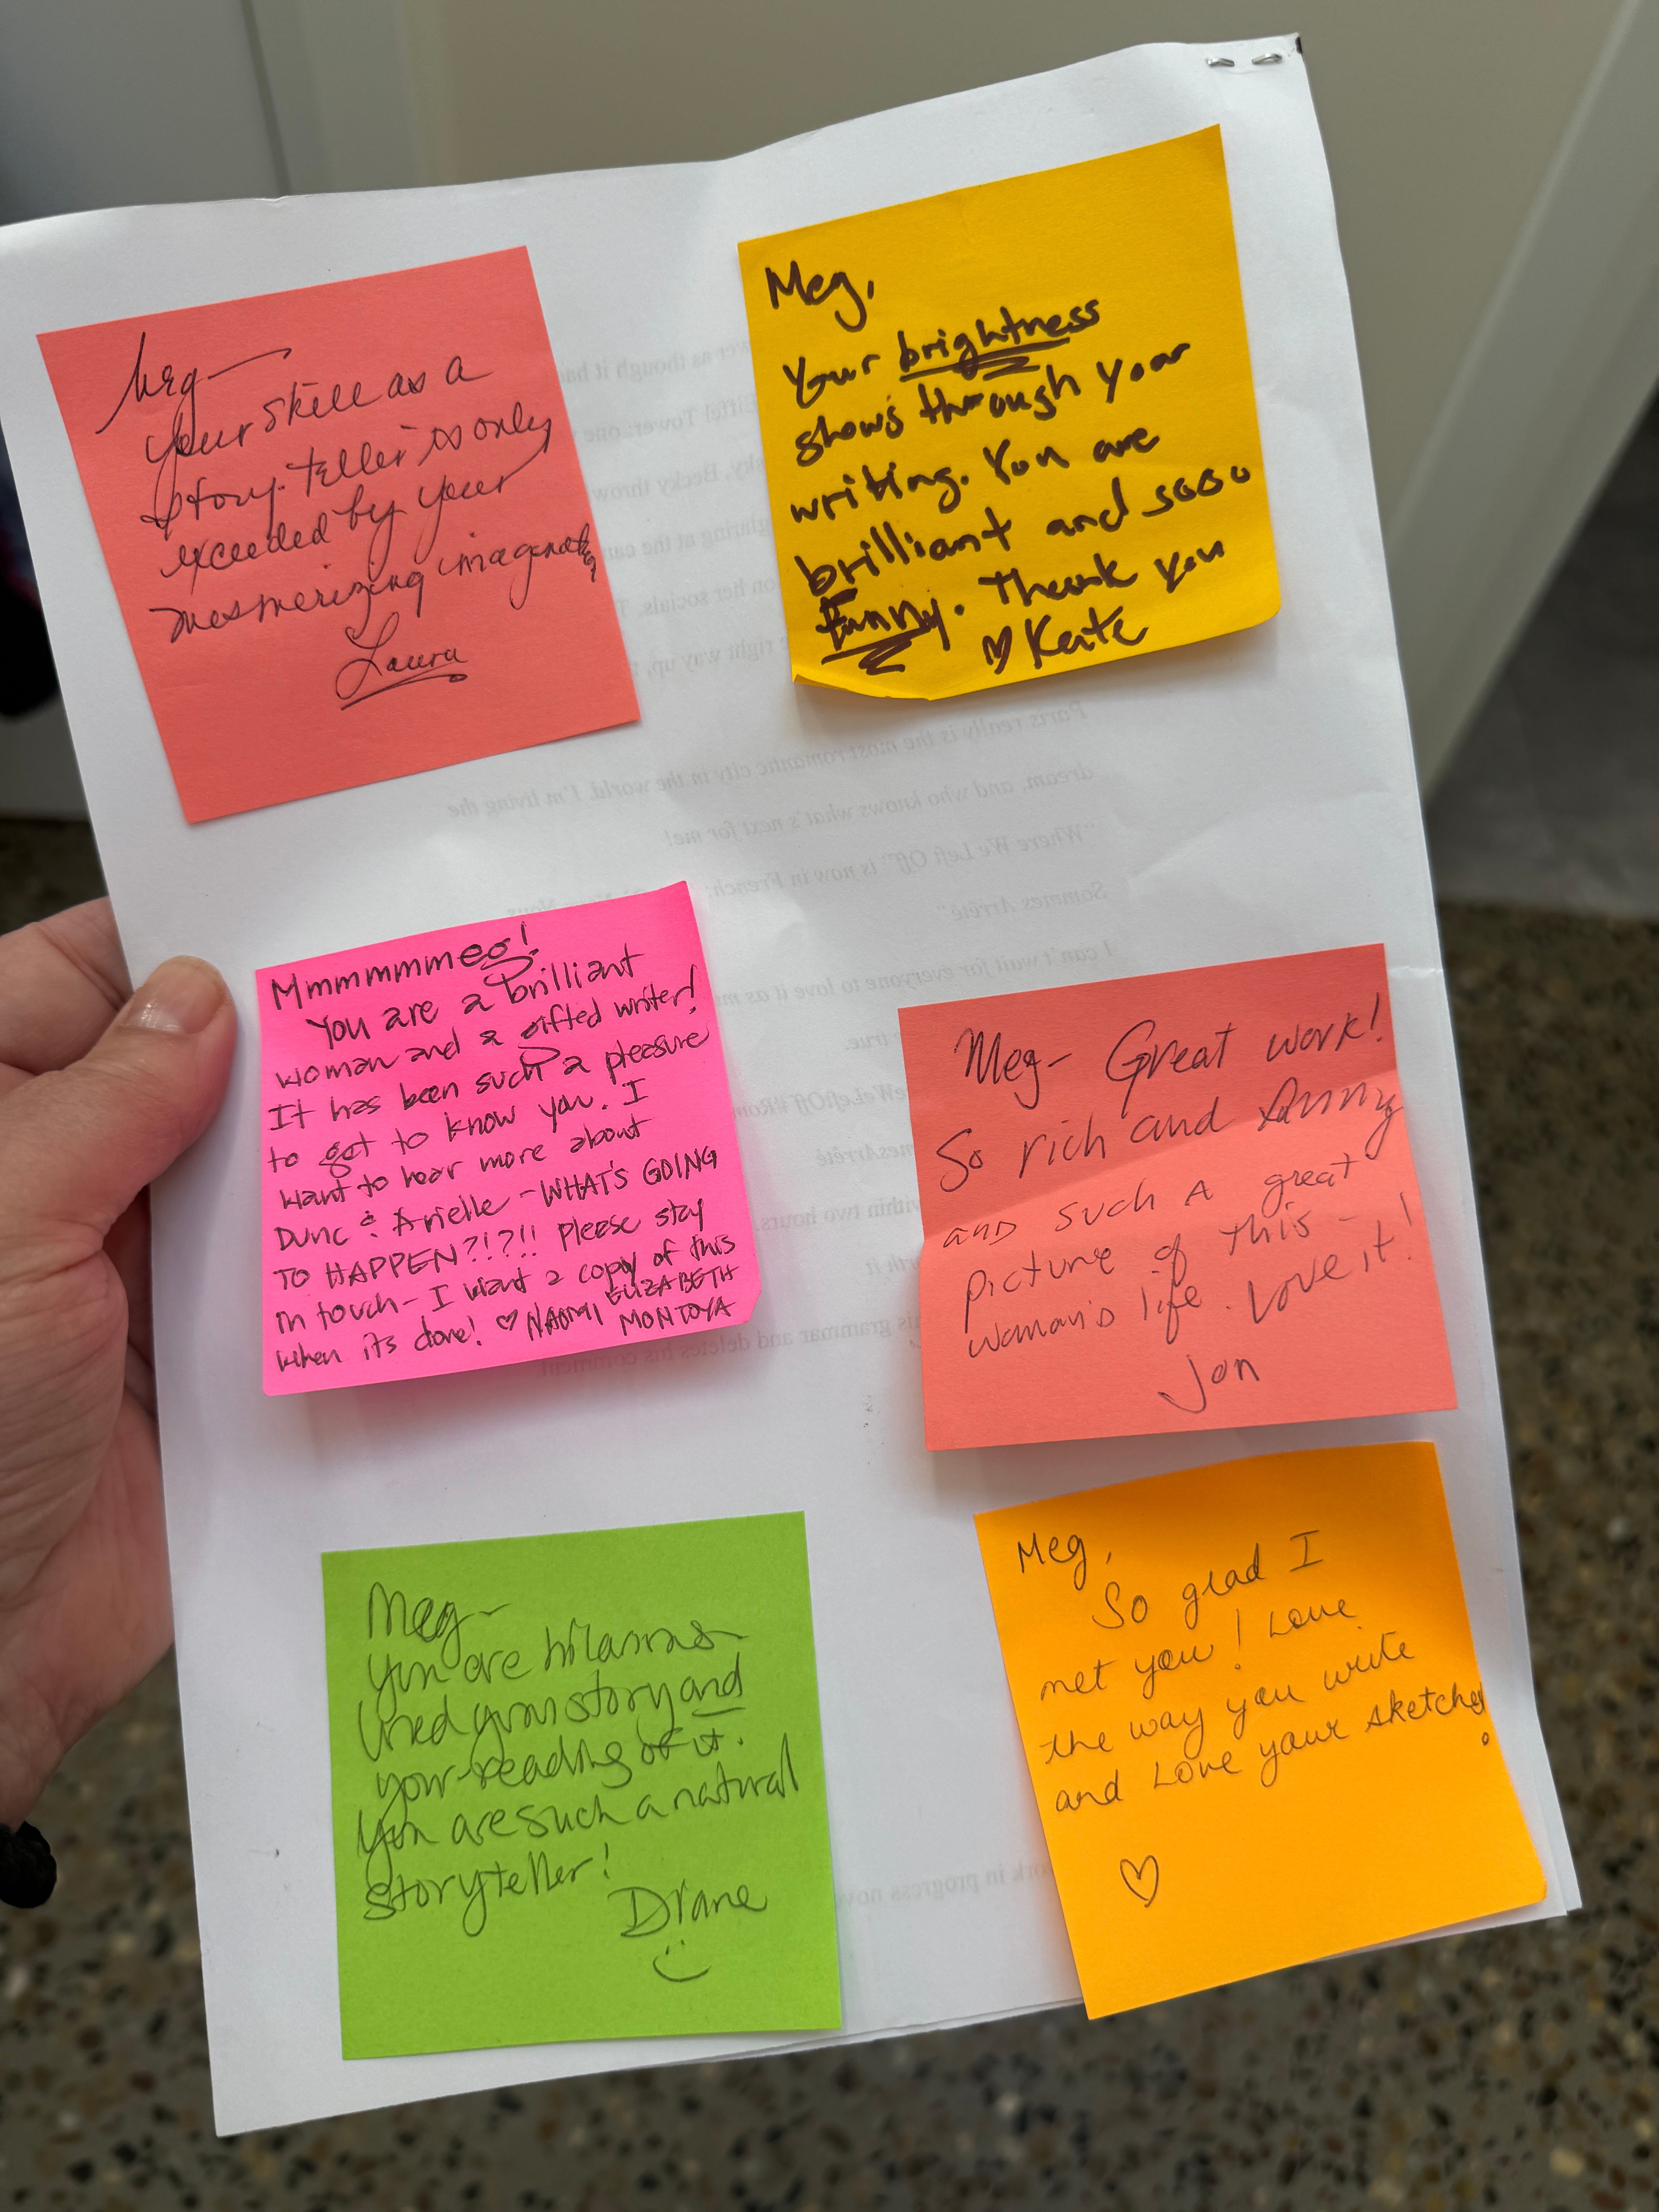 Meg—
your skill as a
story-teller is only
exceeded by your
mesmerizing
Laura
Meg,
Your brightness
shows through your
writing. You are
brilliant and sooo
Funny. Thank you
♡ Kate
Mmmmmmeg!
You are a brilliant
woman and a gifted writer!
It has been such a pleasure
to get to know you. I
want to hear more about
Dunc & Arielle - WHAT'S GOING
TO HAPPEN?!?!! Please stay
in touch - I want a copy of this
when its done! ♡ NAOMI ELIZABETH
MONTOYA
Meg- Great work!
So rich and funny
and such a great
picture of this -
woman's life. Love it!
Jon
Meg-
You are hilarious
your story and
your reading of it.
You are such a natural
storyteller!
Diane
Meg,
So glad I
met you! Love
the way you write
and Love your sketches!
♡
wer as though it had
Eiffel Tower: one
sky, Becky throw
on her socials. T
right way up,
Paris really is the most romantic city in the world. I'm living the
dream, and who knows what's next for me!
"Where We Left Off" is now in French:
Sommes Arrêté"
I can't wait for everyone to love it as m
true.
eWeLeftOff #Rom
mesArrêté
within two hours.
his grammar and deletes his comment.
ork in progress nove